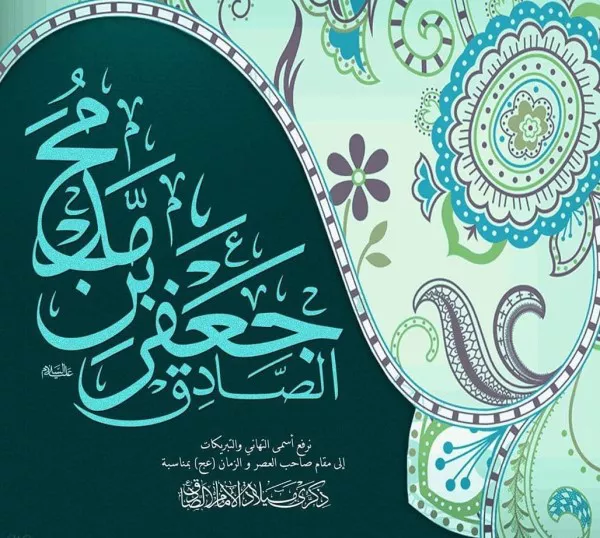 جَعفَر بنِ مُحَمَّد
الصَّادِق
عليه السلام
نرفع أسمى التهاني والتبريكات
إلى مقام صاحب العصر و الزمان (عج) بمناسبة
ذكرى ميلاد الامام الصادق